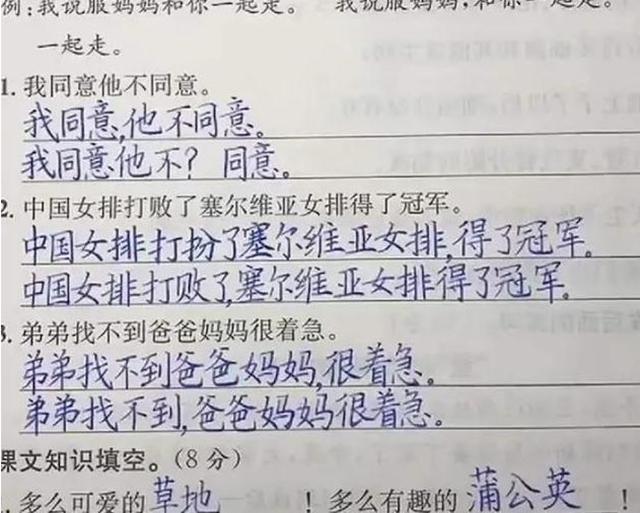 例:我说服妈妈和你一起走。 我说服妈妈,和你一起走。
一起走。
1. 我同意他不同意。
我同意,他不同意。
我同意他不? 同意。
2. 中国女排打败了塞尔维亚女排得了冠军。
中国女排打扮了塞尔维亚女排,得了冠军。
中国女排打败了,塞尔维亚女排得了冠军。
3. 弟弟找不到爸爸妈妈很着急。
弟弟找不到爸爸妈妈,很着急。
弟弟找不到,爸爸妈妈很着急。
课文知识填空。(8分)
. 多么可爱的草地 ! 多么有趣的 蒲公英 !